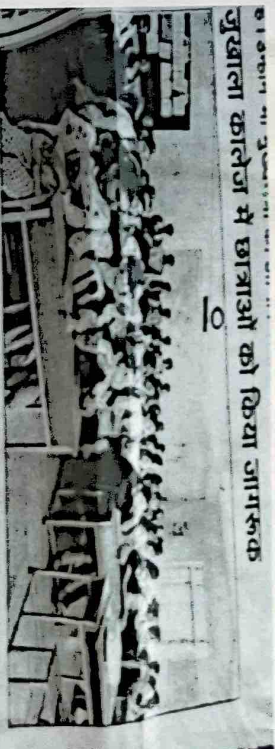 जुखाला कालेज में छात्राओं को किया जागरूक